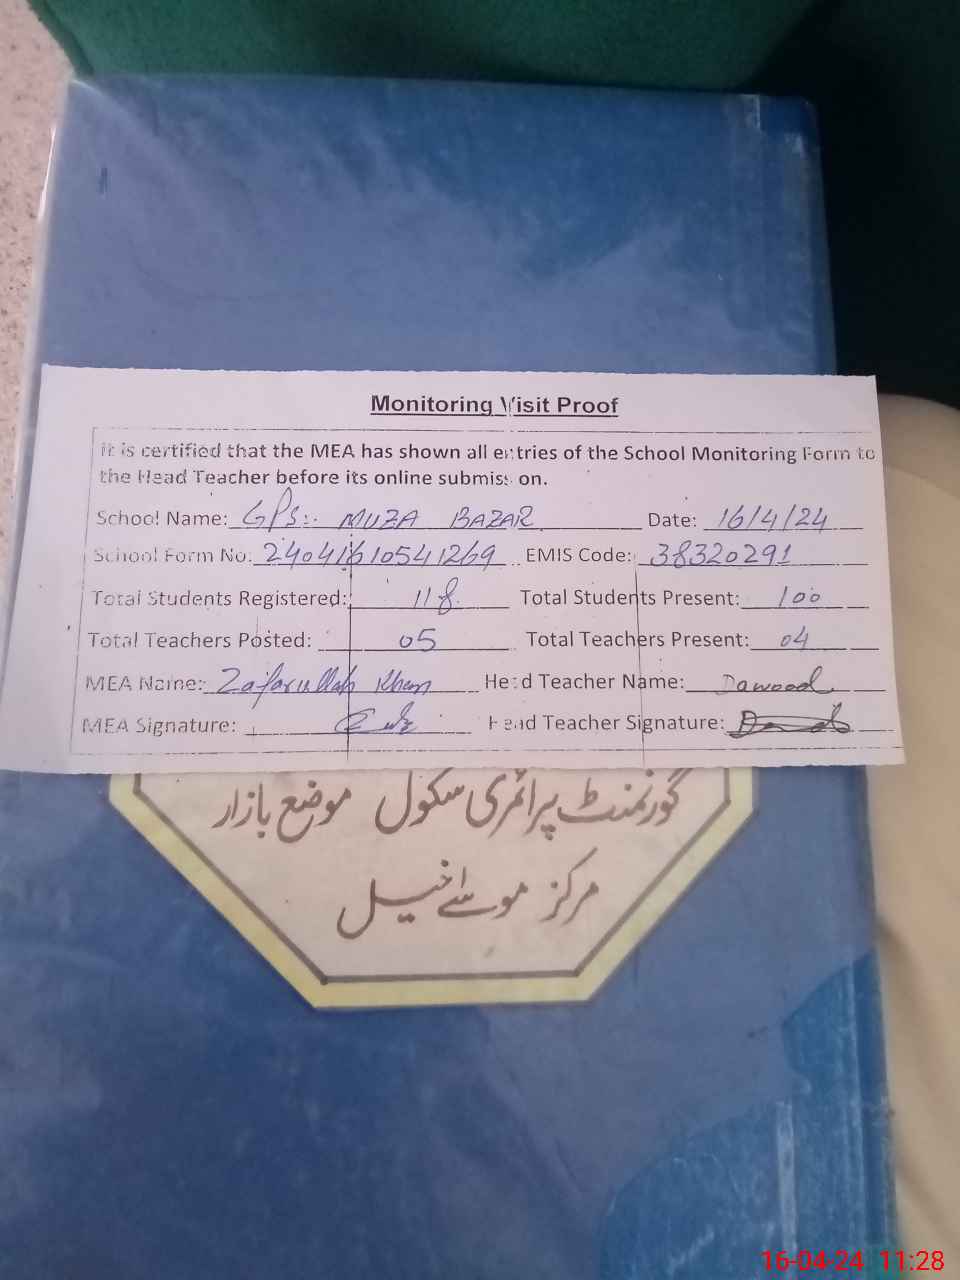 Monitoring Visit Proof
It is certified that the MEA has shown all entries of the School Monitoring Form to
the Head Teacher before its online submission.
School Name: GPS:. MUZA BAZAR Date: 16/4/24
School Form No: 24041610541269 EMIS Code: 38320291
Total Students Registered: 118 Total Students Present: 100
Total Teachers Posted: 05 Total Teachers Present: 04
MEA Name: Zafarullah Khan Head Teacher Name: Dawood
MEA Signature: Head Teacher Signature:
گورنمنٹ پرائمری سکول موضع بازار
مرکز موسےٰ خیل
16-04-24 11:28